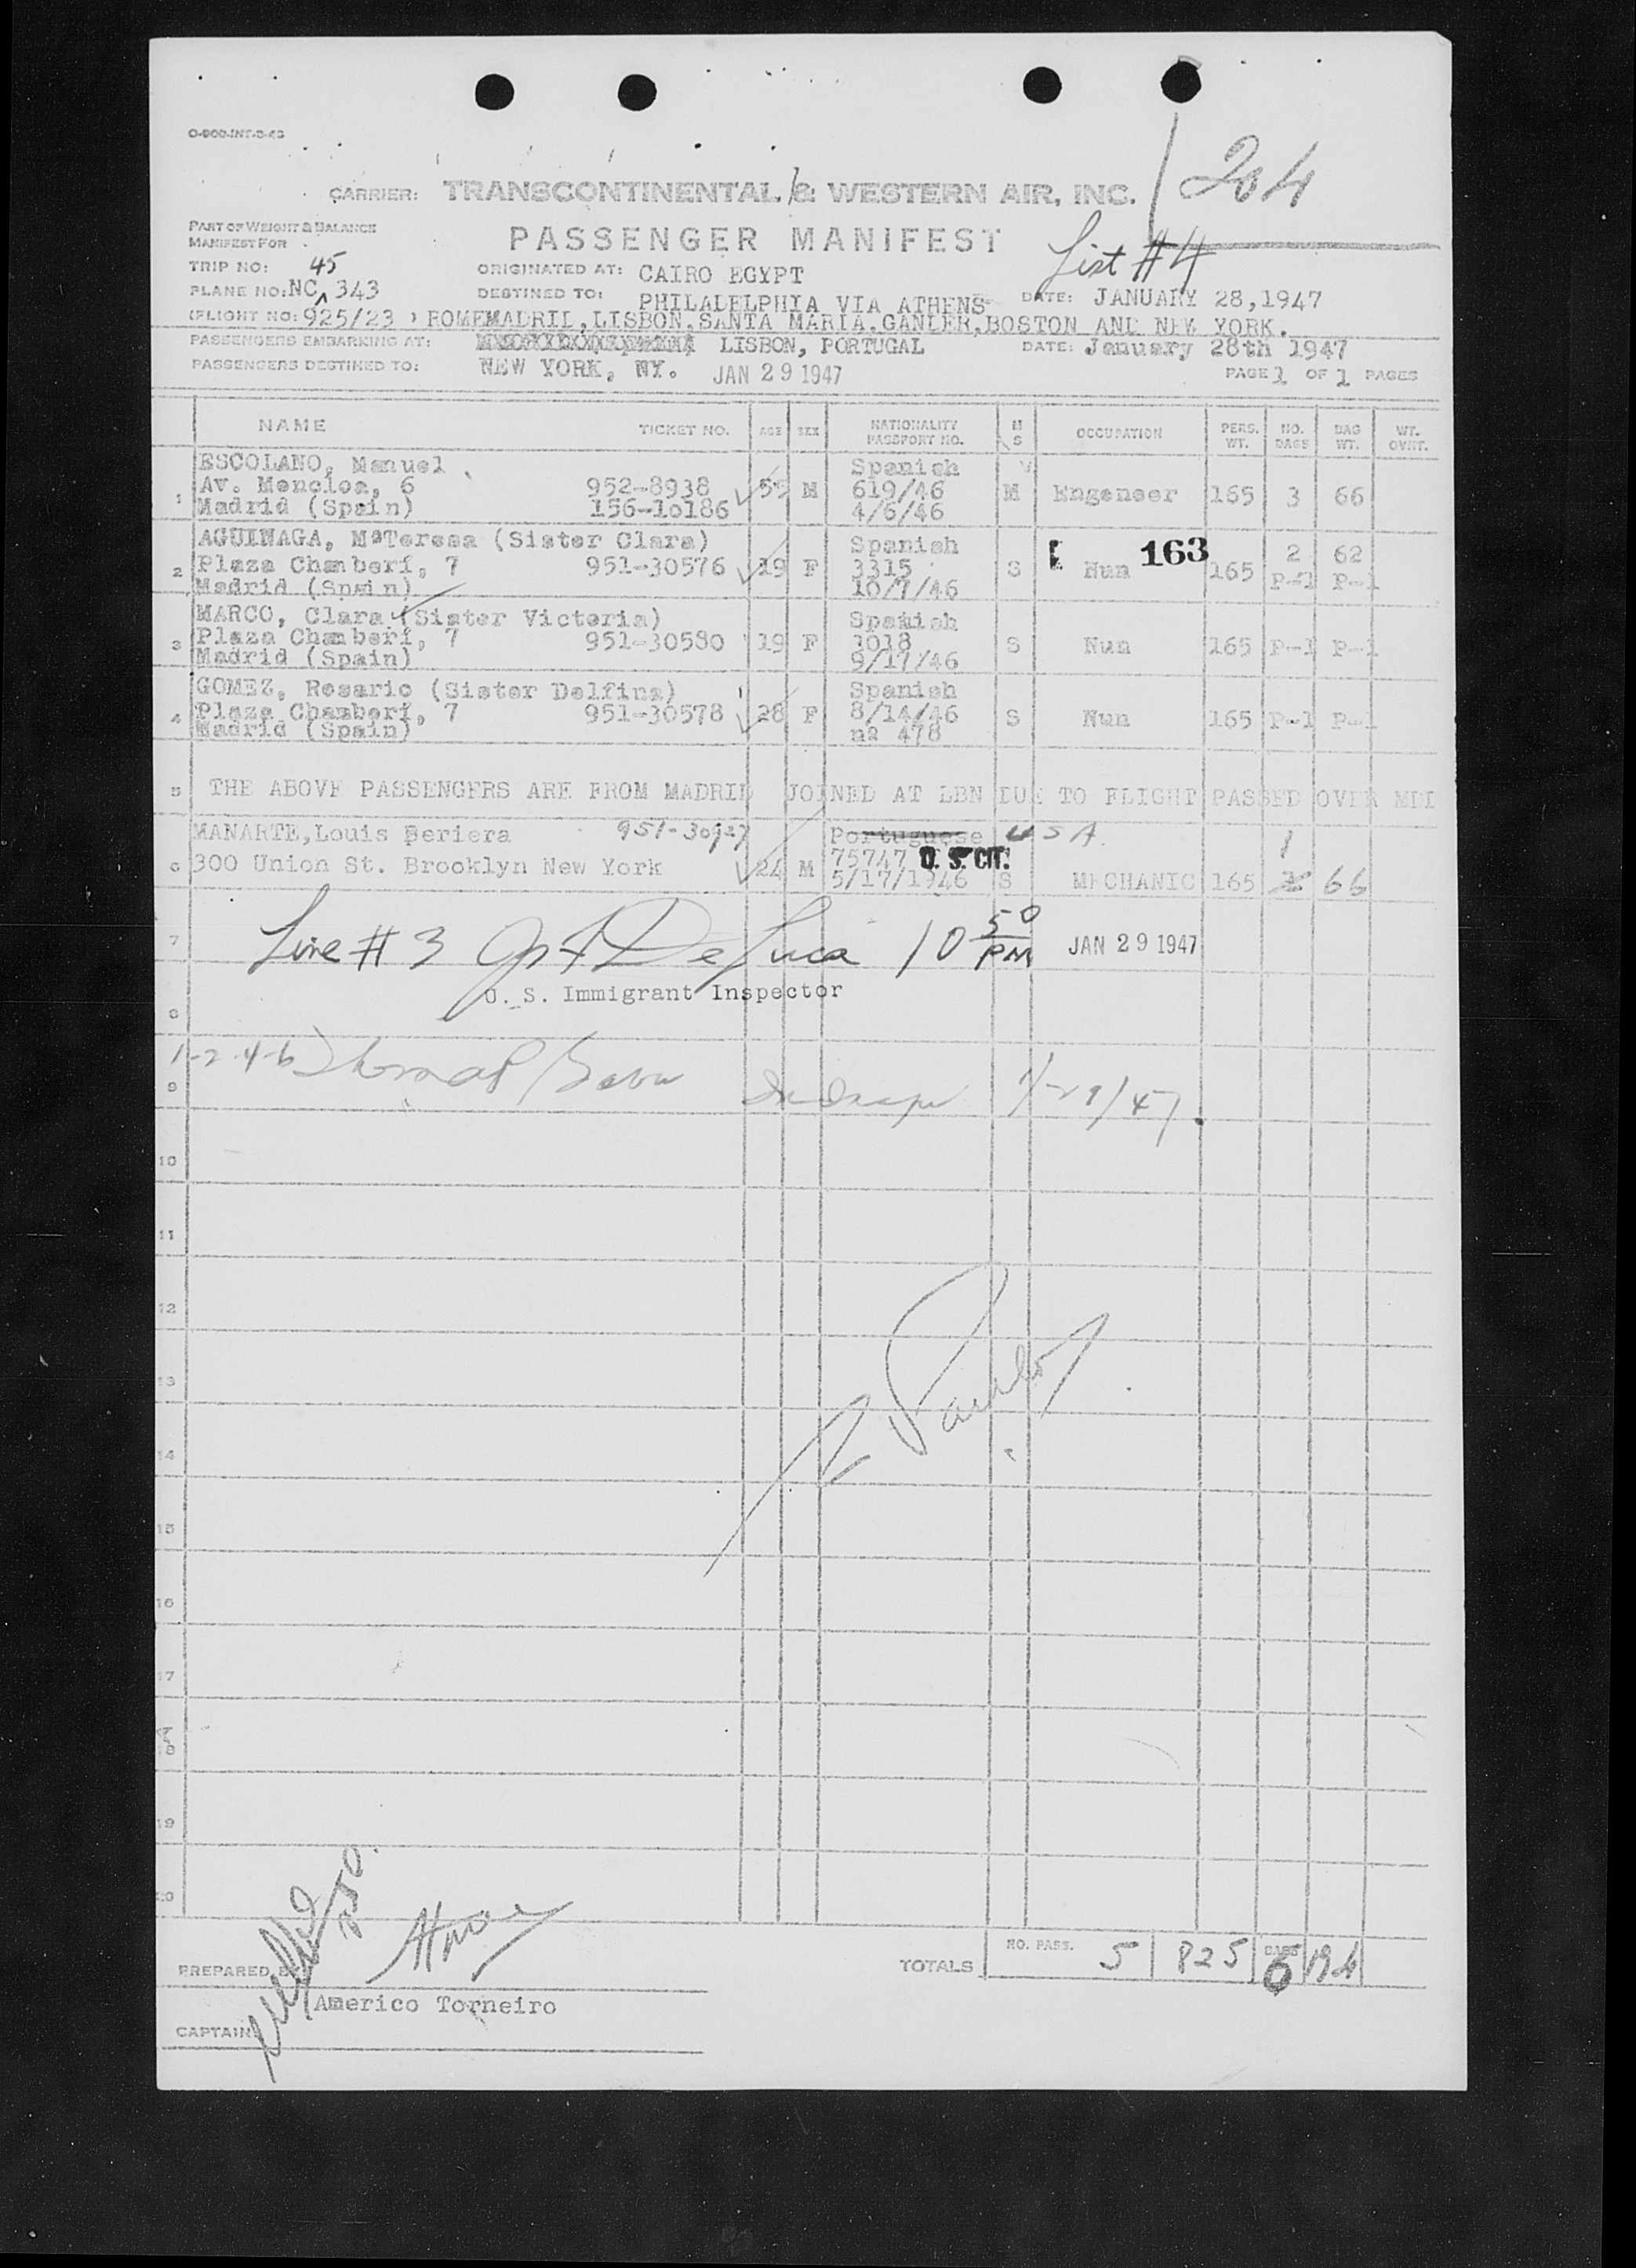 O-900-INT-3-43
CARRIER: TRANSCONTINENTAL & WESTERN AIR, INC. 204
PART OF WEIGHT & BALANCE
MANIFEST FOR
PASSENGER MANIFEST List #4
TRIP NO: 45 ORIGINATED AT: CAIRO EGYPT
PLANE NO: NC 343 DESTINED TO: PHILADELPHIA VIA ATHENS DATE: JANUARY 28,1947
(FLIGHT NO: 925/23 ) ROMEMADRID,LISBON,SANTA MARIA,GANDER,BOSTON AND NEW YORK.
PASSENGERS EMBARKING AT: LISBON, PORTUGAL DATE: January 28th 1947
PASSENGERS DESTINED TO: NEW YORK, NY. JAN 29 1947 PAGE 1 OF 1 PAGES
NAME TICKET NO. AGE SEX NATIONALITY PASSPORT NO. M S OCCUPATION PERS. WT. NO. BAGS BAG WT. WT. OVRT.
ESCOLANO, Manuel Spanish
1 Av. Moncloa, 6 952-8938 55 M 619/46 M Engeneer 165 3 66
Madrid (Spain) 156-10186 4/6/46
AGUINAGA, MªTeresa (Sister Clara) Spanish 163 2 62
2 Plaza Chamberí, 7 951-30576 19 F 3315 S Nun 165 P-1 P-1
Madrid (Spain) 10/7/46
MARCO, Clara (Sister Victoria) Spanish
3 Plaza Chamberí, 7 951-30580 19 F 1018 S Nun 165 P-1 P-1
Madrid (Spain) 9/17/46
GOMEZ, Rosario (Sister Delfina) Spanish
4 Plaza Chamberí, 7 951-30578 28 F 8/14/46 S Nun 165 P-1 P-1
Madrid (Spain) nº 478
5 THE ABOVE PASSENGERS ARE FROM MADRID JOINED AT LBN DUE TO FLIGHT PASSED OVER MDI
MANARTE,Louis Beriera Portuguese USA. 1
75747 U. S. CIT.
6 300 Union St. Brooklyn New York 24 M 5/17/1946 S MECHANIC 165 66
7 Line # 3 De Luca 10 50 PM JAN 29 1947
U. S. Immigrant Inspector
8
1-2-4-6 1/29/47
9
10
11
12
13
14
15
16
17
18
19
20
TOTALS NO. PASS. 5 825 BAGS 6 194
PREPARED BY
Americo Torneiro
CAPTAIN